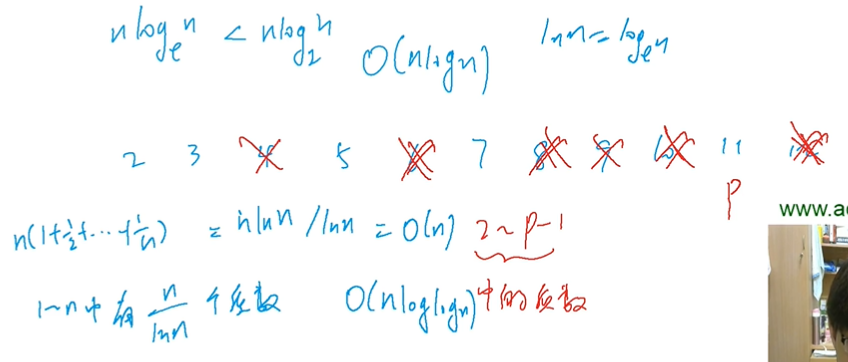 n log_e n < n log_2 n O(n log n) ln n = log_e n
2 3 4 5 6 7 8 9 10 11 12
P
www.a
n(1+1/2+…+1/n) = n ln n / ln n = O(n) 2~P-1
1~n中有 n/ln n 个质数 O(n log log n) 中的质数